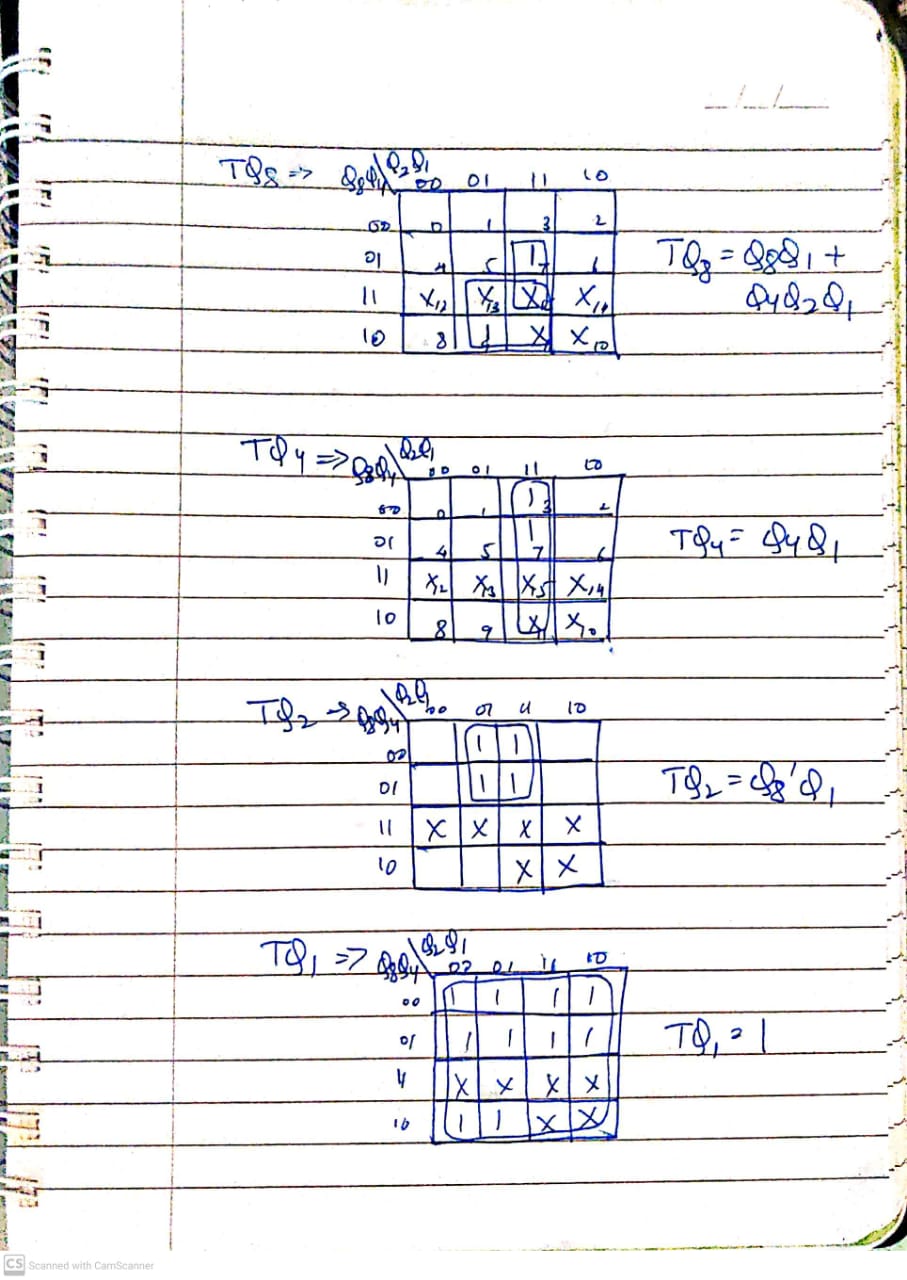 _ / _ / _
TQ8 => Q8Q4\Q2Q1 00 01 11 10
00 0 1 3 2
01 4 5 1 7 6
11 X12 X13 X X14
10 8 1 9 X X10
TQ8 = Q8Q1 +
Q4Q2Q1
TQ4 => Q8Q4\Q2Q1 00 01 11 10
00 0 1 1 3 2
01 4 5 1 7 6
11 X12 X13 X15 X14
10 8 9 X11 X10
TQ4 = Q4Q1
TQ2 → Q8Q4\Q2Q1 00 01 11 10
00 1 1
01 1 1
11 X X X X
10 X X
TQ2 = Q8'Q1
TQ1 => Q8Q4\Q2Q1 00 01 11 10
00 1 1 1 1
01 1 1 1 1
11 X X X X
10 1 1 X X
TQ1 = 1
CS Scanned with CamScanner